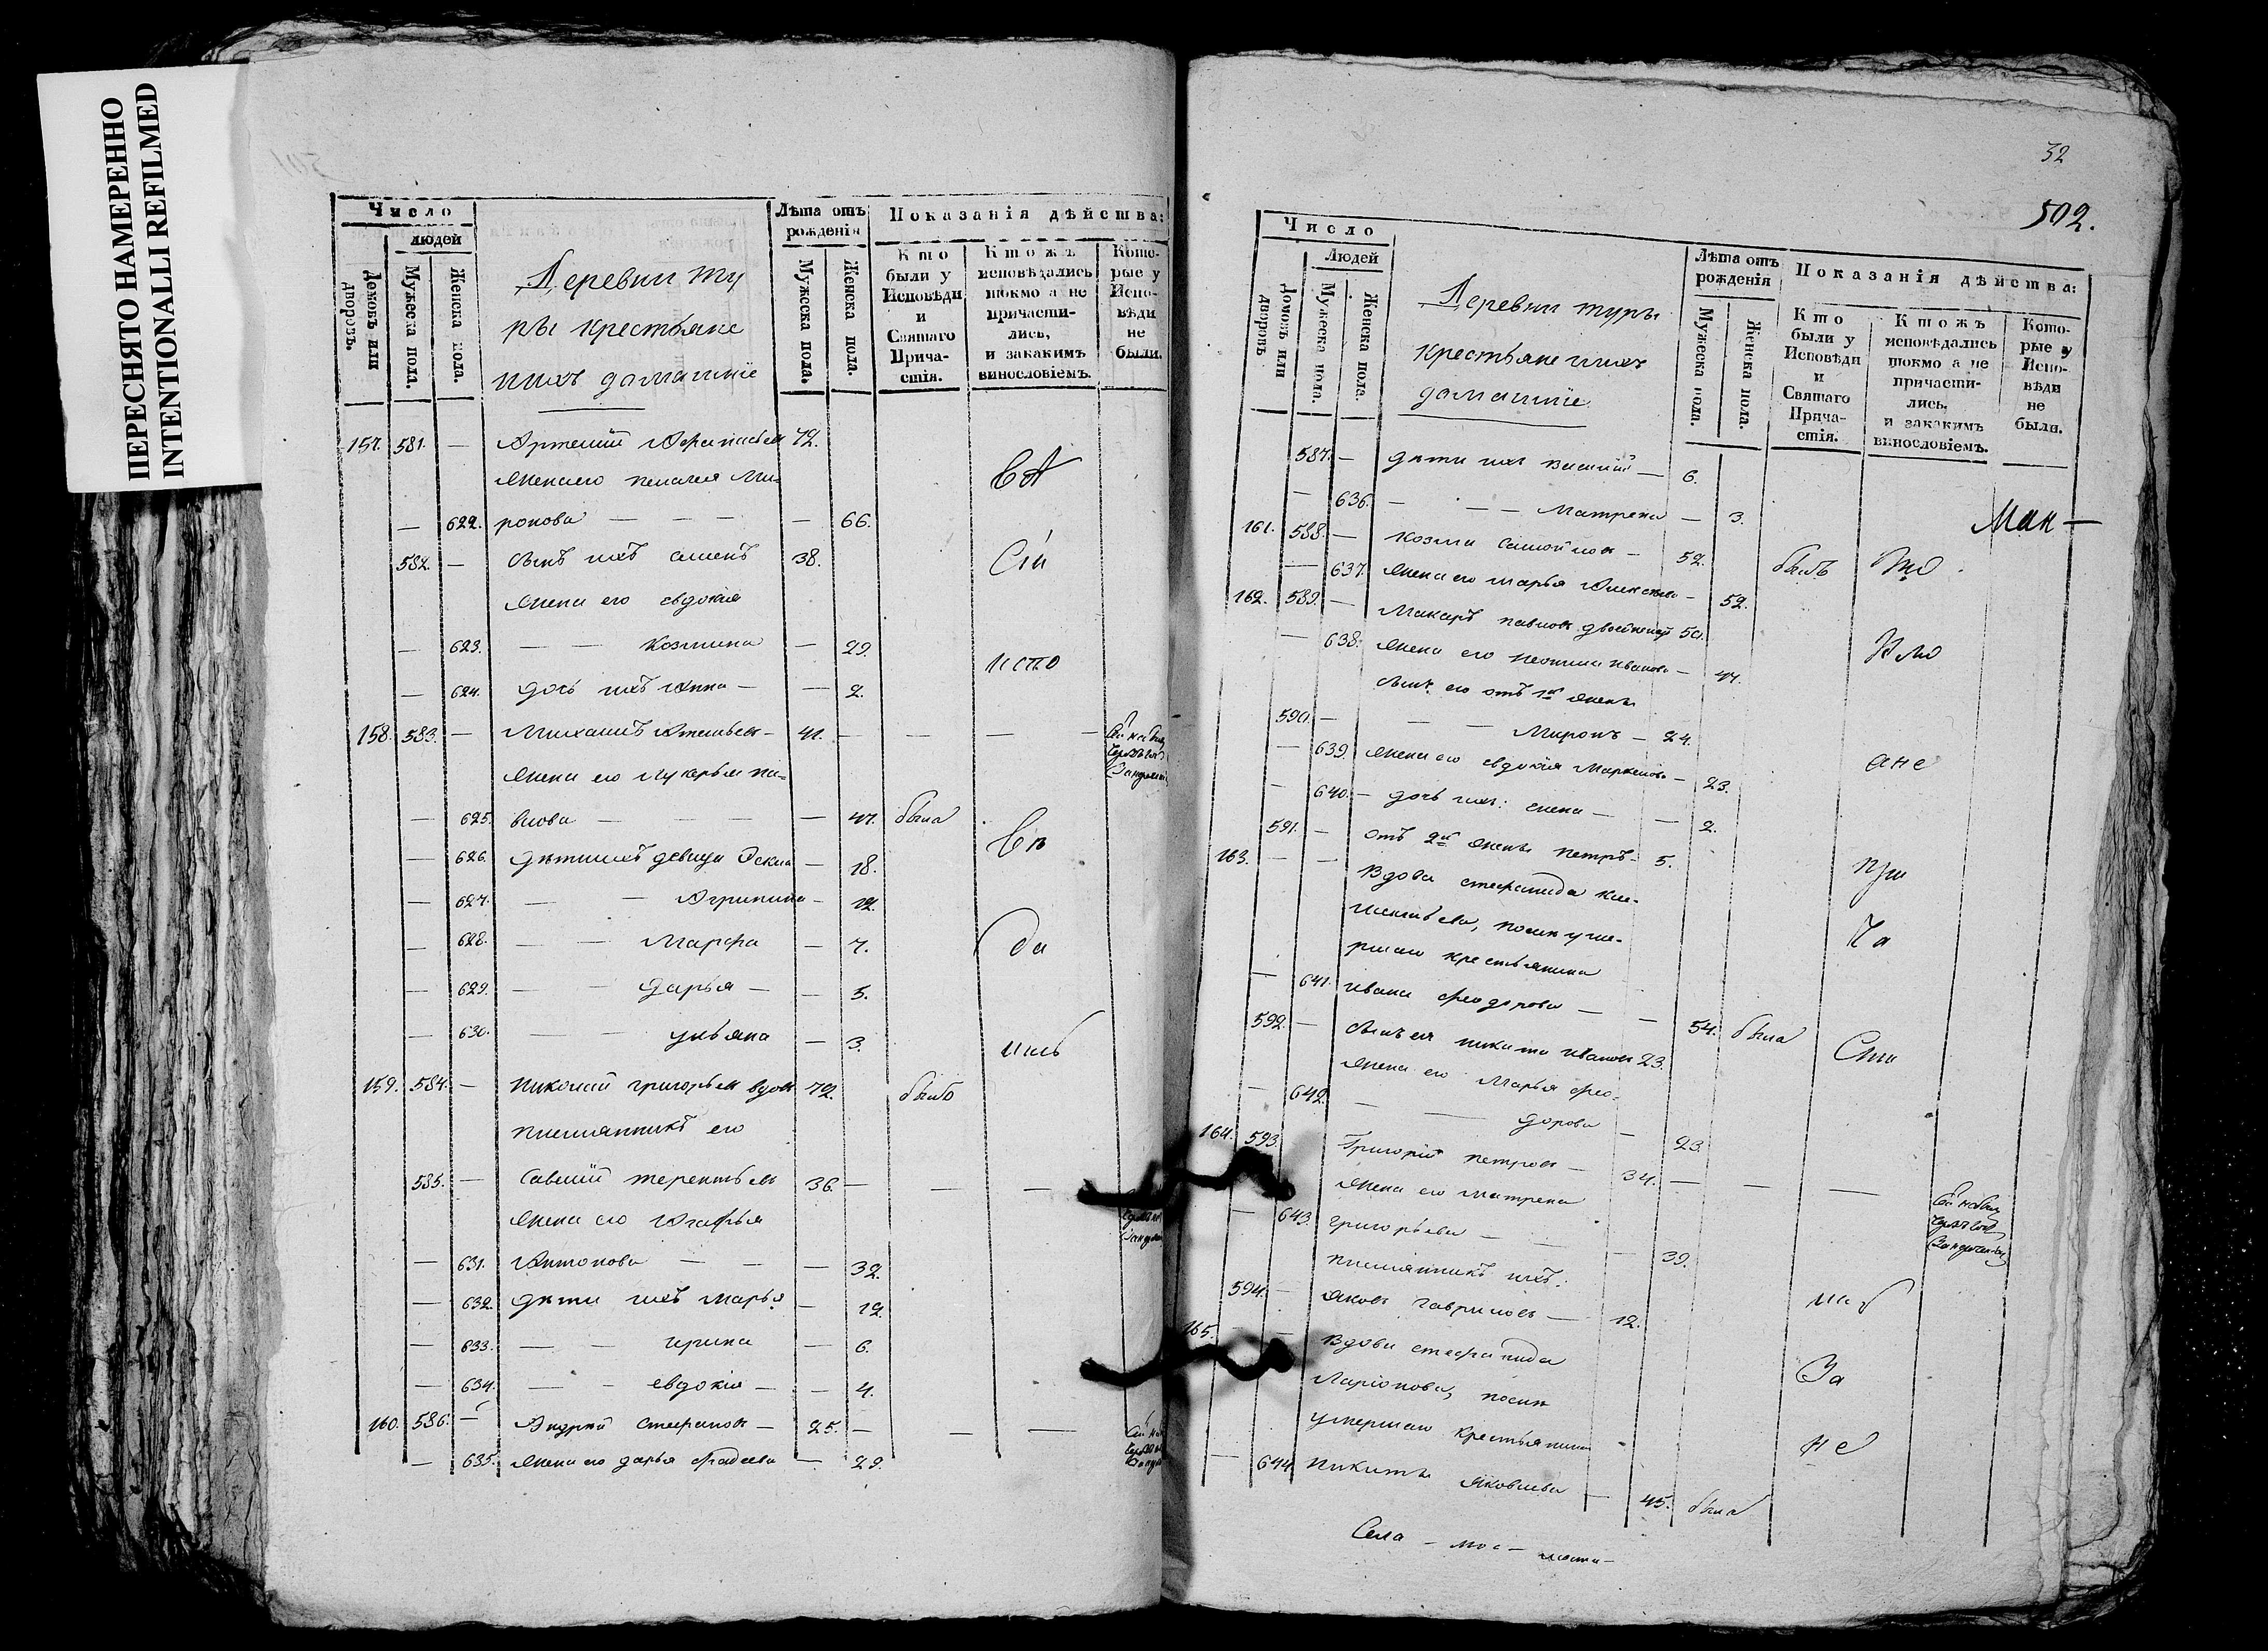 ПЕРЕСНЯТО НАМЕРЕННО
INTENTIONALLI REFILMED
Число
людей
Домовъ или дворовъ.
Мужеска пола.
Женска пола.
Деревни ту
ры крестьяне
ихъ домашніе
Лѣта отъ рожденія
Мужеска пола.
Женска пола.
Показанія дѣйства:
Кто были у Исповѣди и Святаго Причастія.
Ктожъ исповѣдались токмо а не причастились, и закакимъ винословіемъ.
Которые у Исповѣди не были.
157. 581. — Артемій Афанасьевъ 72.
жена его Пелагея Ми-
— 622. ронова — — — — 66.
582. — сынъ ихъ 38.
жена его евдокія
— 623. — — козмина — 29.
— 624. дочь ихъ Анна — — 2.
158. 583. — Михаилъ 41. — — — —
жена его Лукерья па=
— 625. влова — — — — 47. была
— 626. дѣти ихъ девица — 18.
— 627. — — Агрипина — 12.
— 628. — — Марфа — 7.
— 629. — — дарья — — 5.
— 630. — — ульяна — 3.
159. 584. — Николай григорьевъ вдовъ 72. былъ
племянникъ его
585. — Савелій терентьевъ 36. — — —
жена его Агафья
— 631. Антонова — — — 32.
— 632. дѣти ихъ Марья — 12.
— 633. — — ирина — 6.
— 634. — — евдокія — — 4.
160. 586. — Андрей Стефановъ — 25. — — —
— 635. жена его дарья фадеева — 29.
32
502.
Число
Людей
Домовъ или дворовъ
Мужеска пола.
Женска пола.
Деревни туры
крестьяне ихъ
домашніе
Лѣта отъ рожденія
Мужеска пола.
Женска пола.
Показанія дѣйства:
Кто были у Исповѣди и Святаго Причастія.
Ктожъ исповѣдались токмо а не причастились, и закакимъ винословіемъ.
Которые у Исповѣди не были.
587. — дѣти ихъ Василій — 6.
— 636. — — — Матрена — 3.
161. 588. — козма Самойловъ — 52. былъ
— 637. жена его марья — 52.
162. 589. — Макаръ павловъ 50.
— 638. жена его иванова — 44.
сынъ его отъ 1й жены
590. — — — Миронъ — 24.
— 639. жена его евдокія — 23.
— 640. — дочь ихъ: елена — — 2.
591. — отъ 2й жены петръ — 5.
163. — — Вдова стефанида
послѣ уме-
ршаго крестьянина
— 641. ивана феодорова — — 54. была
592. — сынъ ея никита ивановъ 23.
жена его Марья фео-
— 642. — — дорова — 23.
164. 593. Григорій петровъ — 34. — — —
жена его матрена
— 643. григорьева — — — 39.
племянникъ ихъ:
594. — яковъ гавриловъ — 12.
165. — — Вдова стефанида
Ларіонова, послѣ
умершаго крестьянина
— 644. никиты яковлева — 45. была
Села —